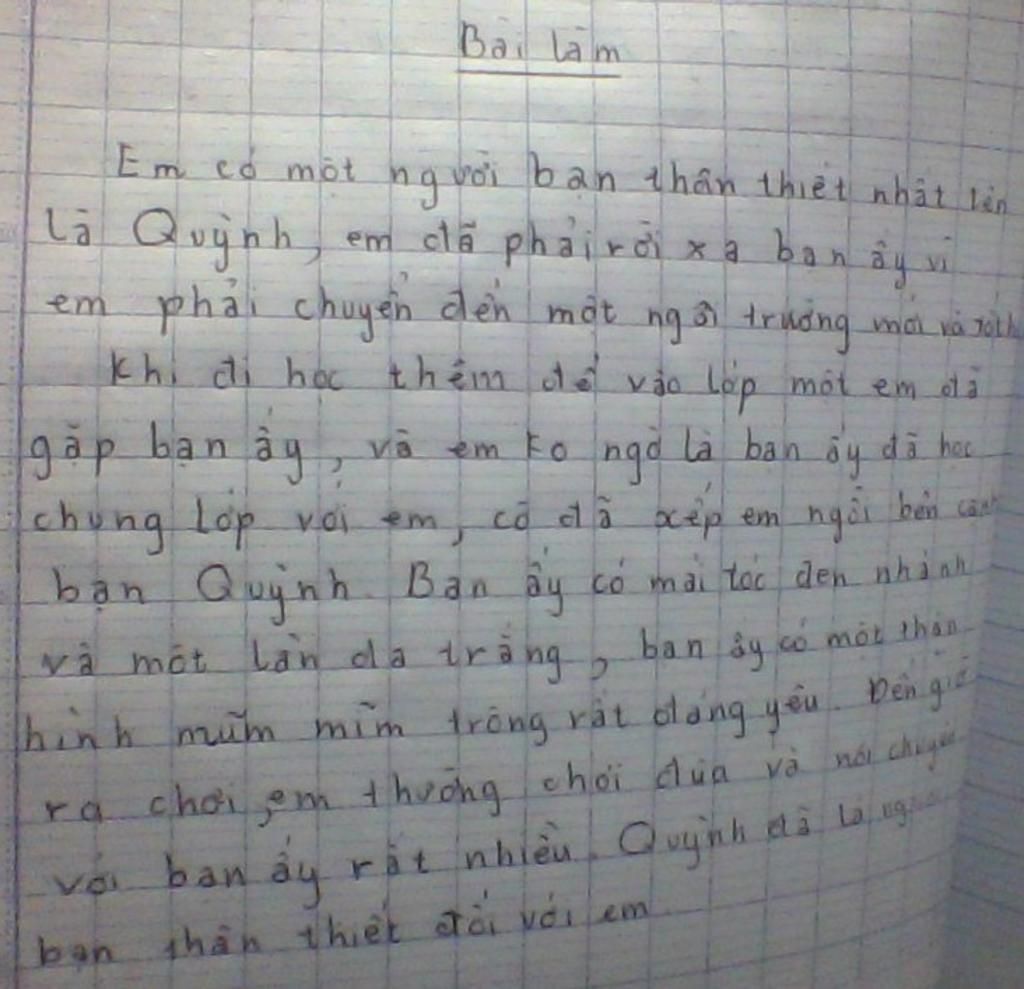 Bài làm
Em có một người bạn thân thiết nhất tên
là Quỳnh, em đã phải rời xa bạn ấy vì
em phải chuyển đến một ngôi trường mới và
Khi đi học thêm để vào lớp một em đã
gặp bạn ấy, và em ko ngờ là bạn ấy đã học
chung lớp với em, cô đã xếp em ngồi bên cạnh
bạn Quỳnh. Bạn ấy có mái tóc đen nhánh
và một làn da trắng, bạn ấy có một thân
hình mũm mĩm trông rất đáng yêu. Đến giờ
ra chơi, em thường chơi đùa và nói chuyện
với bạn ấy rất nhiều. Quỳnh đã là người
bạn thân thiết đối với em